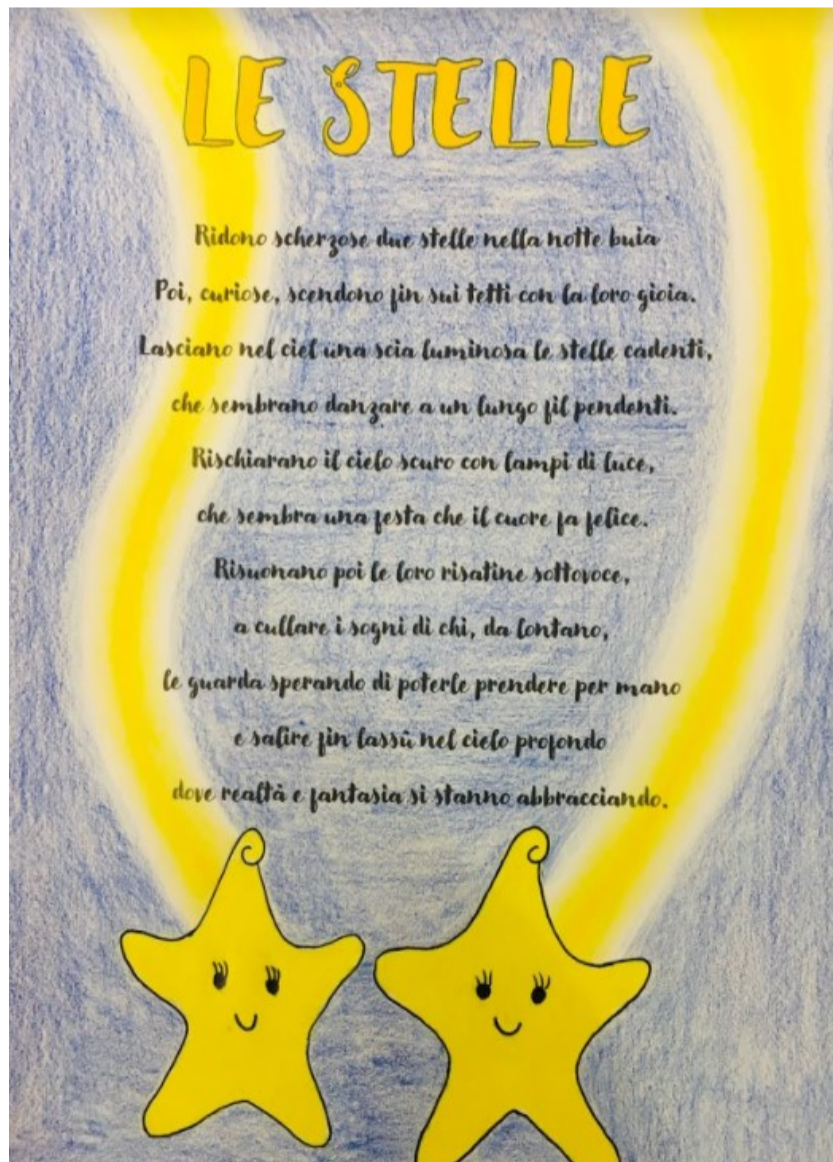 LE STELLE
Ridono scherzose due stelle nella notte buia
Poi, curiose, scendono fin sui tetti con la loro gioia.
Lasciano nel ciel una scia luminosa le stelle cadenti,
che sembrano danzare a un lungo fil pendenti.
Rischiarano il cielo scuro con lampi di luce,
che sembra una festa che il cuore fa felice.
Risuonano poi le loro risatine sottovoce,
a cullare i sogni di chi, da lontano,
le guarda sperando di poterle prendere per mano
e salire fin lassù nel cielo profondo
dove realtà e fantasia si stanno abbracciando.